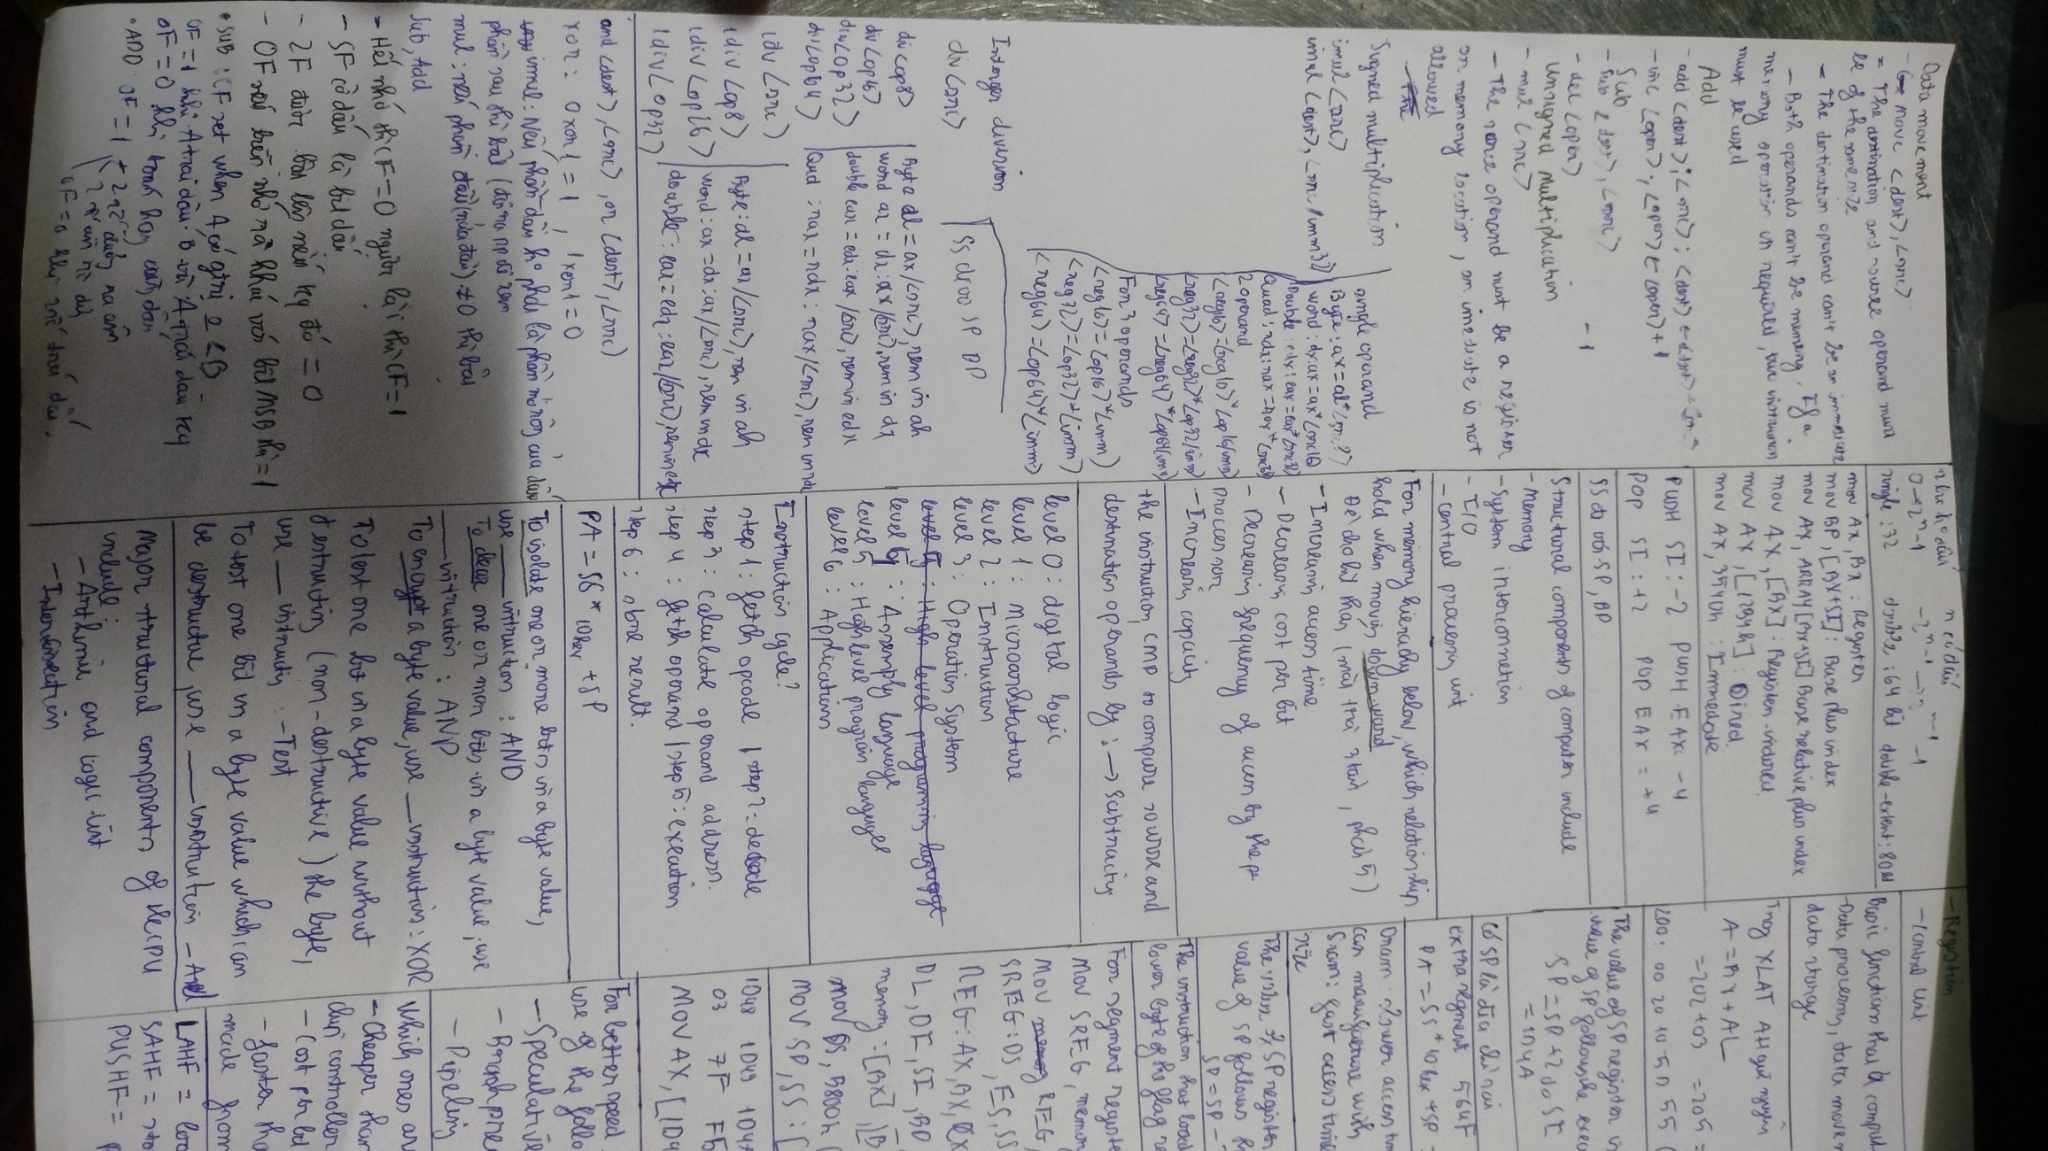 Data movement
- move <dest>, <src>
= The destination and source operand must
be of the same size
- The destination operand can't be an immediate
- Both operands can't be memory. If a
memory operation is required, two instruction
must be used
Add
- add <dest>, <src> ; <dest> ←
- inc <oper> ; <oper> ← <oper> + 1
Sub
- sub <dest>, <src>
- del <oper> - 1
Unsigned multiplication
- mul <src>
- The source operand must be a register
or memory location, an imediate is not
allowed
Signed multiplication
imul <src>
imul <dest>, <src/imm32>
single operand
Byte: ax = al * <src8>
word: dx:ax = ax * <src16>
Double: edx:eax = eax * <src32>
Quad: rdx:rax =
2 operand
<reg16> = <reg16> * <op16/imm>
<reg32> = <reg32> * <op32/imm>
<reg64> = <reg64> * <op64/imm>
For 3 operands
<reg16> = <op16> * <imm>
<reg32> = <op32> * <imm>
<reg64> = <op64> * <imm>
Interger division
div <src>
SS SP BP
div <op8>
div <op16>
div <op32>
div <op64>
Byte al = ax/<src>, rem in ah
word ax = dx:ax/<src>, rem in dx
double eax = edx:eax/<src>, rem in edx
Quad: rax = rdx:rax/<src>, rem in rdx
idiv <src>
idiv <op8>
idiv <op16>
idiv <op32>
Byte: al = ax/<src>, rem in ah
word: ax = dx:ax/<src>, rem in dx
double: eax = edx:eax/<src>, rem in edx
and <dest>, <src>, or <dest>, <src>
xor: 0 xor 1 = 1, 1 xor 1 = 0
imul: Nếu phần đầu ko phải là phần mở rộng của dấu
phần sau thì bật
mul: nếu phần đầu (nửa đầu) ≠ 0 thì bật
Sub, Add
- Hết nhớ thì CF=0 ngược lại thì CF=1
- SF cờ dấu là bit dấu
- ZF được bật lên nếu kq đó = 0
- OF nếu bên nhớ ra khác với bit MSB thì = 1
• SUB: CF set when A có gtri < B
OF=1 khi A trái dấu B và A trái dấu kq
OF=0 khi toán hạng cùng dấu
• ADD OF=1 2 số dương ra âm
2 số âm ra
OF=0 khi số trái dấu.
n ko dấu n có dấu
0 → 2^n-1 -2^n-1 → 2^n-1 -1
single: 32 double: 64 bit double-extent: 80
mov AX, BX: Register
mov BP, [BX+SI]: Base plus index
mov AX, ARRAY[BX+SI] Base relative plus index
mov AX, [BX]: Register indired
mov AX, [1234h]: Dired
mov AX, 3540h: Immedate
PUSH SI: -2 PUSH EAX: -4
POP SI: +2 POP EAX = +4
SS đi với SP, BP
Structural components of computer include
- Memory
- System interconnetion
- I/O
- central processing unit
For memory hierachy below, which relationship
hold when moving downward
- Increasing access time
- Decreasing cost per bit
- Decreasing frequency of access by the
proccessor
- Increasing capacity
the instruction, CMP to compare source and
destination operands by: → Subtracting
level 0: digital logic
level 1: Microarchitacture
level 2: Instruction
level 3: Operation System
level 4: High level programming language
level 4: Assemply language
level 5: High level program languages
level 6: Applications
Instruction cycle?
step 1: fetch opcode / step 2: decode
step 3: calculate operand address.
step 4: fetch operand / step 5: execution
step 6: store result.
PA = SS * 10hex + SP
To isolate one or more bits in a byte value,
use ___ instruction: AND
To clear one or more bits in a byte value, use
___ instruction: AND
To encrypt a byte value, use __ instruction: XOR
To test one bit in a byte value without
destructing (non-destructive) the byte,
use __ instructy: - Test
To test one bit in a byte value which can
be destructue, use ___ instruction - And
Major structural components of the CPU
include:
- Arthmic and Logic Unit
- Interconnection
- Registion
- Control unit
Basic functions that a comput
- Data processing, data move
data storge
Trong XLAT AH giữ nguyên
A = BX + AL
= 202 + 03 = 205 =
200: 00 20 10 5D 55
The value of SP register is
value of SP follows the exec
SP = SP + 2 do SI
= 1D4A
Có SP là địa chỉ rồi
extra segment 564F
PA = SS * 10hex + SP
Dram: slower access tim
can manufacture with
Sram: fast access time
size
The value of SP register
value of SP follows
SP = SP -
The instruction that load
lower byte of the flag re
For segment registe
MOV SREG, memory
MOV REG,
SREG: DS, ES, SS
REG: AX, BX, CX
DL, DI, SI, BP
memory: [BX], [B
MOV DS, 5800h
MOV SP, SS: [
1D48 1D49 1D4A
03 7F F5
MOV AX, [1D4
For better speed
use of the follo
- Speculative
- Branch pre
- Pipeling
Which ones ar
- Cheaper than
chip controller
- Cost per bit
- faster tha
made from
LAHF = loa
SAHF = sto
PUSHF = p